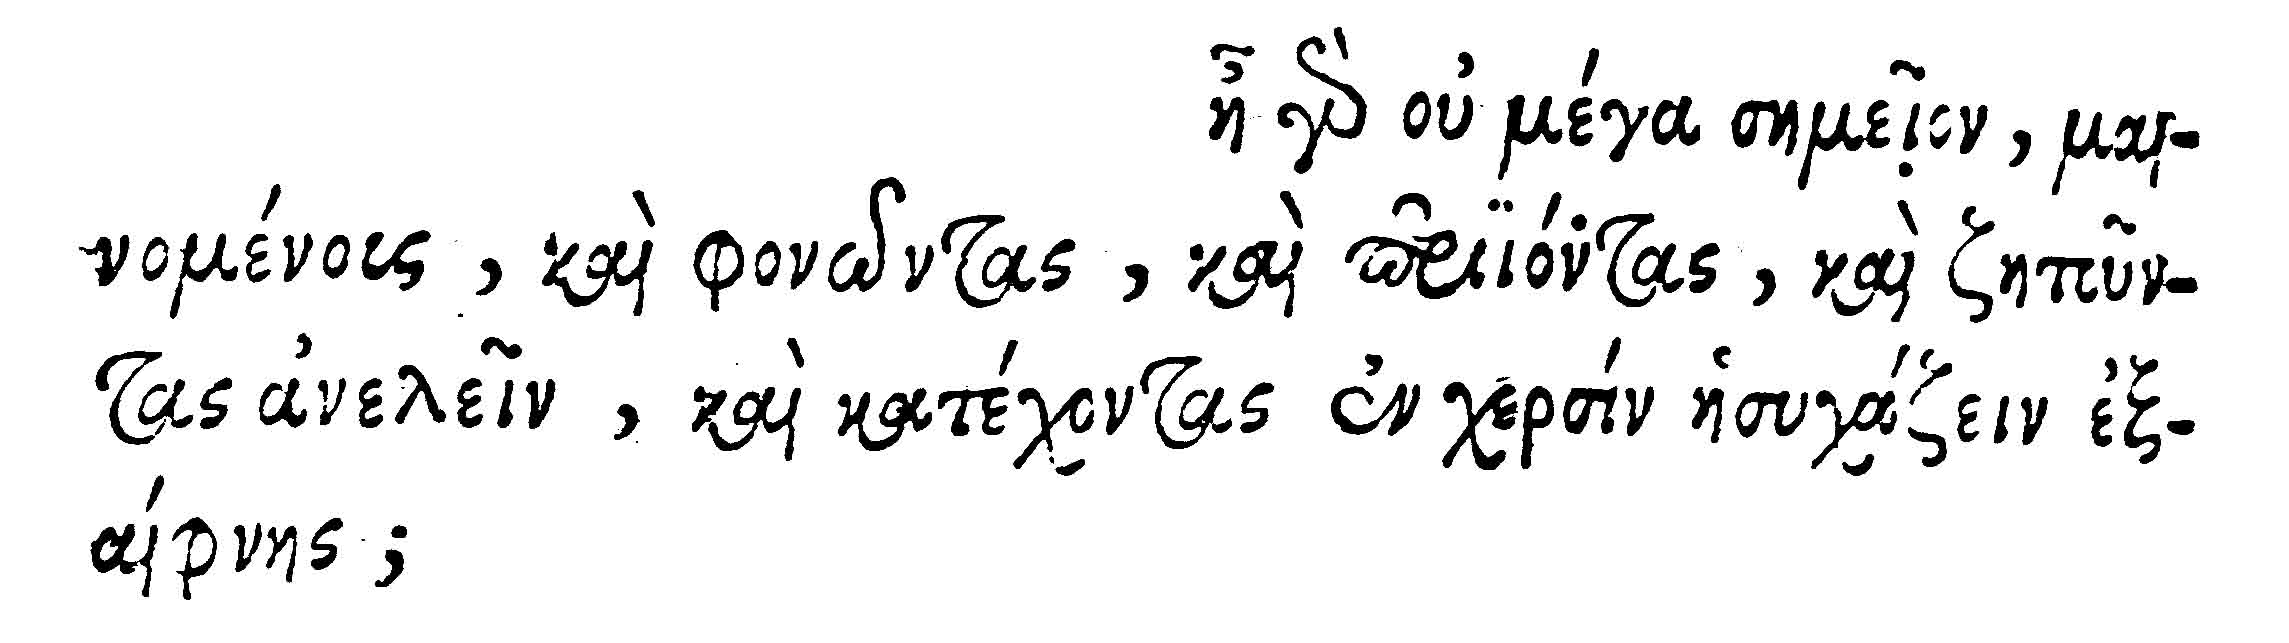 ἦ γὰρ οὐ μέγα σημεῖον, μαι-
νομένους, καὶ φονῶντας, καὶ περιϊόντας, καὶ ζητοῦν-
τας ἀνελεῖν, καὶ κατέχοντας ἐν χερσίν ἡσυχάζειν ἐξ-
αίφνης;